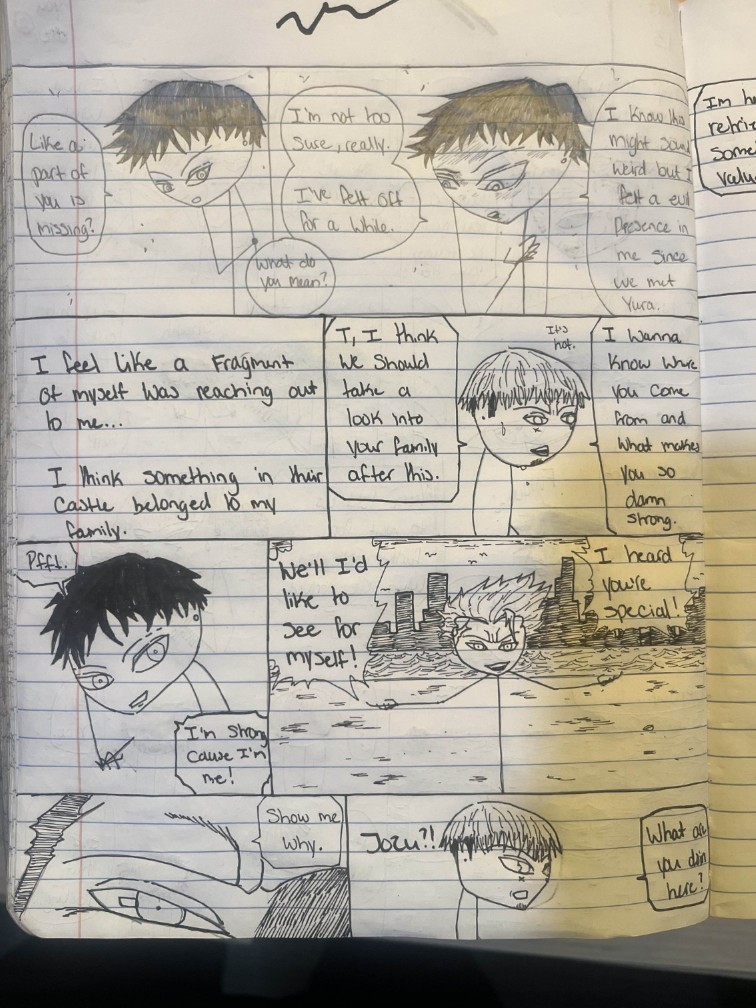 Like a
part of
you is
missing?
What do
you mean?
I'm not too
sure, really.
I've felt off
for a while.
I know this
might sound
weird but I
felt a evil
presence in
me since
we met
Yura.
I feel like a Fragment
of myself was reaching out
to me...
I think something in their
castle belonged to my
family.
T, I think
we should
take a
look into
your family
after this.
It's
hot.
I wanna
know where
you come
from and
what makes
you so
damn
strong.
Pfft.
I'm strong
cause I'm
me!
We'll I'd
like to
see for
myself!
I heard
you're
special!
Show me
why.
Jozu?!
What are
you doin
here?
Im
some